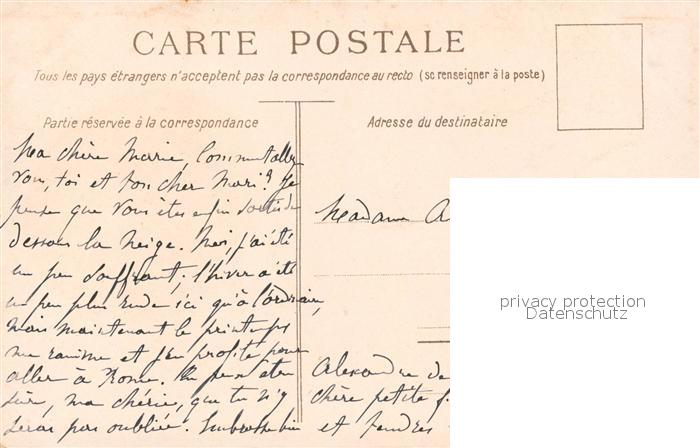 CARTE POSTALE
Tous les pays étrangers n'acceptent pas la correspondance au recto (se renseigner à la poste)
Partie réservée à la correspondance
Adresse du destinataire
Ma chère Marie, Comment allez
vous, toi et ton cher Mari? Je
pense que vous êtes enfin sortis de
dessous la neige. Moi, j'ai été
un peu souffrant; l'hiver a été
un peu plus rude ici qu'à l'ordinaire,
mais maintenant le printemps
me ranime et j'en profite pour
aller à Rome. Tu peux être
sûre, ma chérie, que tu n'y
seras pas oubliée. Embrasse bien
Madame A
Alexandre de
chère petite f
et tendres
privacy protection
Datenschutz